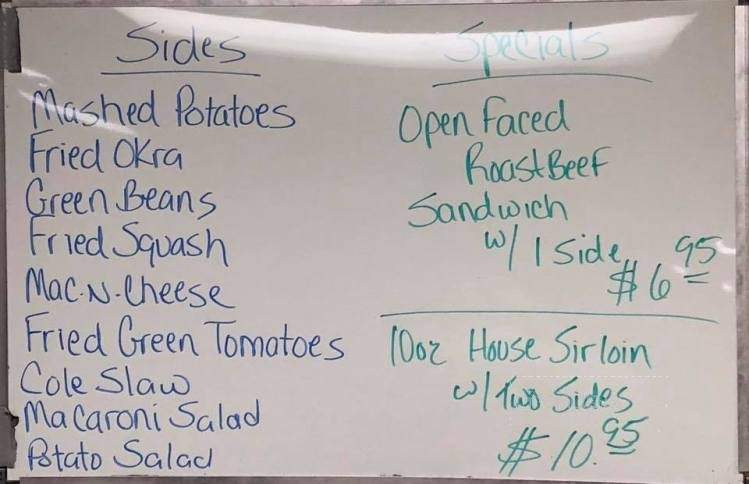 Sides
Mashed Potatoes
Fried Okra
Green Beans
Fried Squash
Mac.N.Cheese
Fried Green Tomatoes
Cole Slaw
Macaroni Salad
Potato Salad
Specials
Open Faced
Roast Beef
Sandwich
w/ 1 Side
$6 95
10oz House Sirloin
w/ Two Sides
$10.95